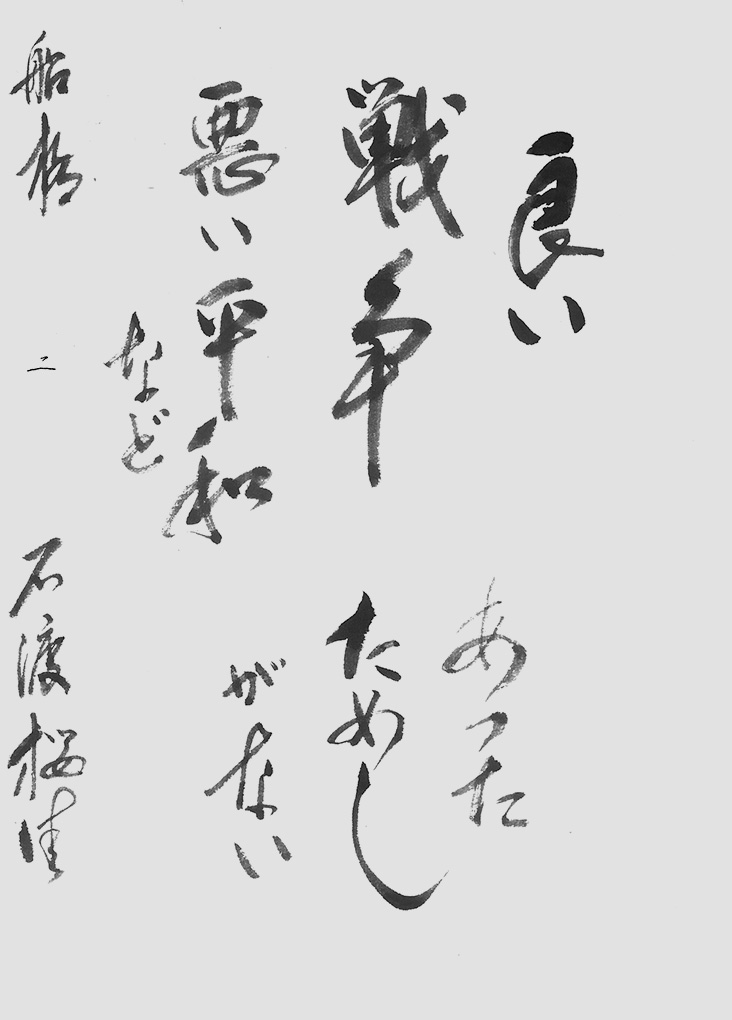 良い
戦争
悪い平和
など
あった
ためし
がない
船橋 二 石渡桜佳